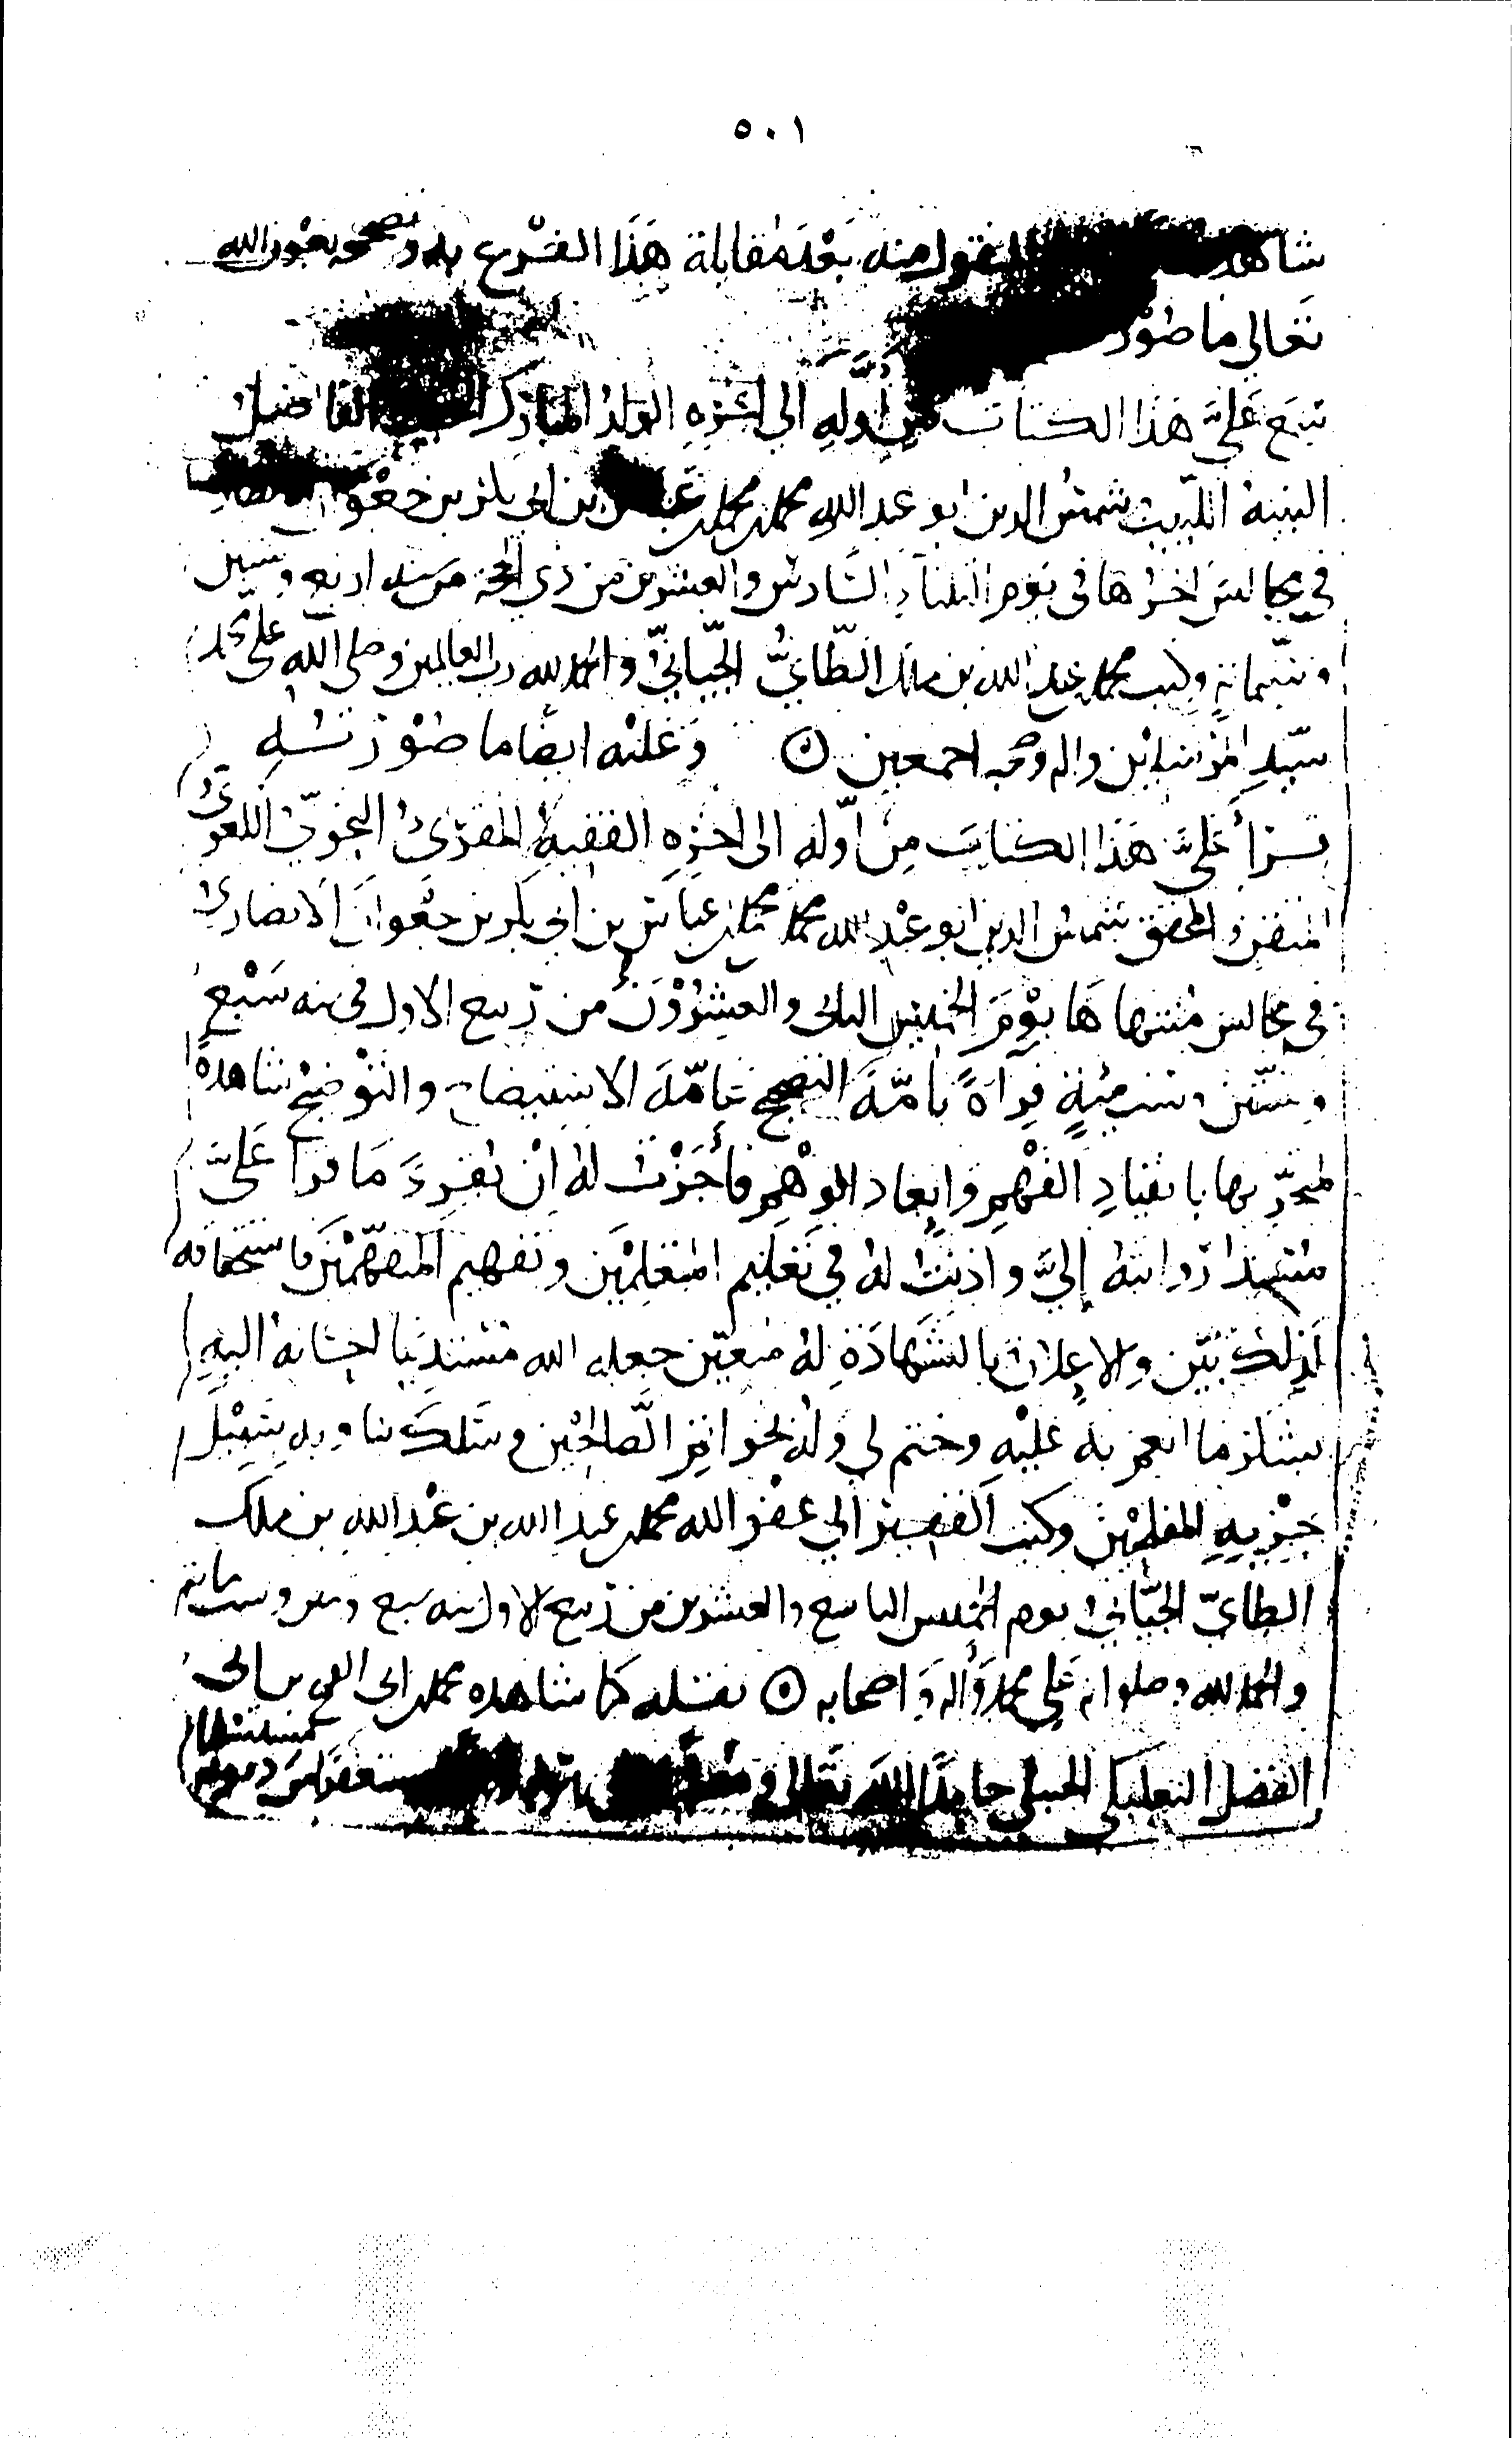 ٥٠١
شاهد المنقول منه بعد مقابلة هَذَا الفَرْع به وتصحيحه بعون الله
تعالى ما صُوْر
سَمعَ عَليَّ هذا الكتاب من أوَّلهِ الى آخرِهِ الولدُ المبارك الفاضلُ
النبيهُ اللبيبُ شمسُ الدين ابو عبد الله محمد بن محمد بن عباس بن ابي بكر بن جعوان
في مجالس اخرُها في يوم الثلثاء السَّادس والعشرين من ذي الحجة من سنه اربع وستين
وستمائة وكتب محمد بن عبد الله بن مالك الطّائيُّ الجيّانيُّ والحمد لله رب العالمين وصلى الله على محمد
سيّدِ المرسَلين واله وصحبه اجمعين وَعَليْه ايضًا ما صُوْرَتُهُ
قرأ عَليَّ هَذَا الكتابَ مِن أوّله الى آخرِهِ الفقيهُ المقرىُ النحويُّ اللغويُّ
المتقن المحقق شمسُ الدين ابو عَبْدِ الله محمد بن محمد بن عباس بن ابي بكر بن جعْوانَ الأنصاريُّ
في مجالس مُنتهاهَا يوْمَ الخميس الثاني والعِشْرُوْنَ من ربيع الاول في سنه سَبْع
وستّين وستمئةٍ قِراءةً تامّةَ التصحيح عامّةَ الاستيضاح والتوْضيحْ شاهدةً
لمتحرّيها بانقيادِ الفَهْمِ وابعاد الوهْمِ فأجَزْتُ لهُ انْ يُقرِئَ مَا قرأ عَليَّ
مُسْنِدًا رّوايتهُ إليَّ واذنتُ لهُ في تَعْليم المتعَلمِيْن وتفهيم المتفهّميْنَ فاستحقاقه
لذلك بَيّن والاعلان بالشَهادَةِ لهُ متعين جعله الله مُسْتديمًا لحسَانه اليهِ
بشكر ما انعم به عَليْهِ وختم لي وله بخواتمِ الصَّالحيْن وسَلكَ بنا وبه سَبيْلَ
حِزْبِهِ المفلحِيْن وكتب الفقير الى عفو الله محمد بن عبد الله بن عَبْد الله بن مالك
الطائيّ الجيّانيُّ يوم الخميس التاسع والعشرين من ربيع الاول سنه سبع وستين وستمائة
والحمد لله وصلواته عَلى محمد وَآله وَاصحابه نقله كما شاهده محمد بن ابي الفتح بن ابي
الفضل البعلبكي الحنبلي حامِدًا الله تعَالى و